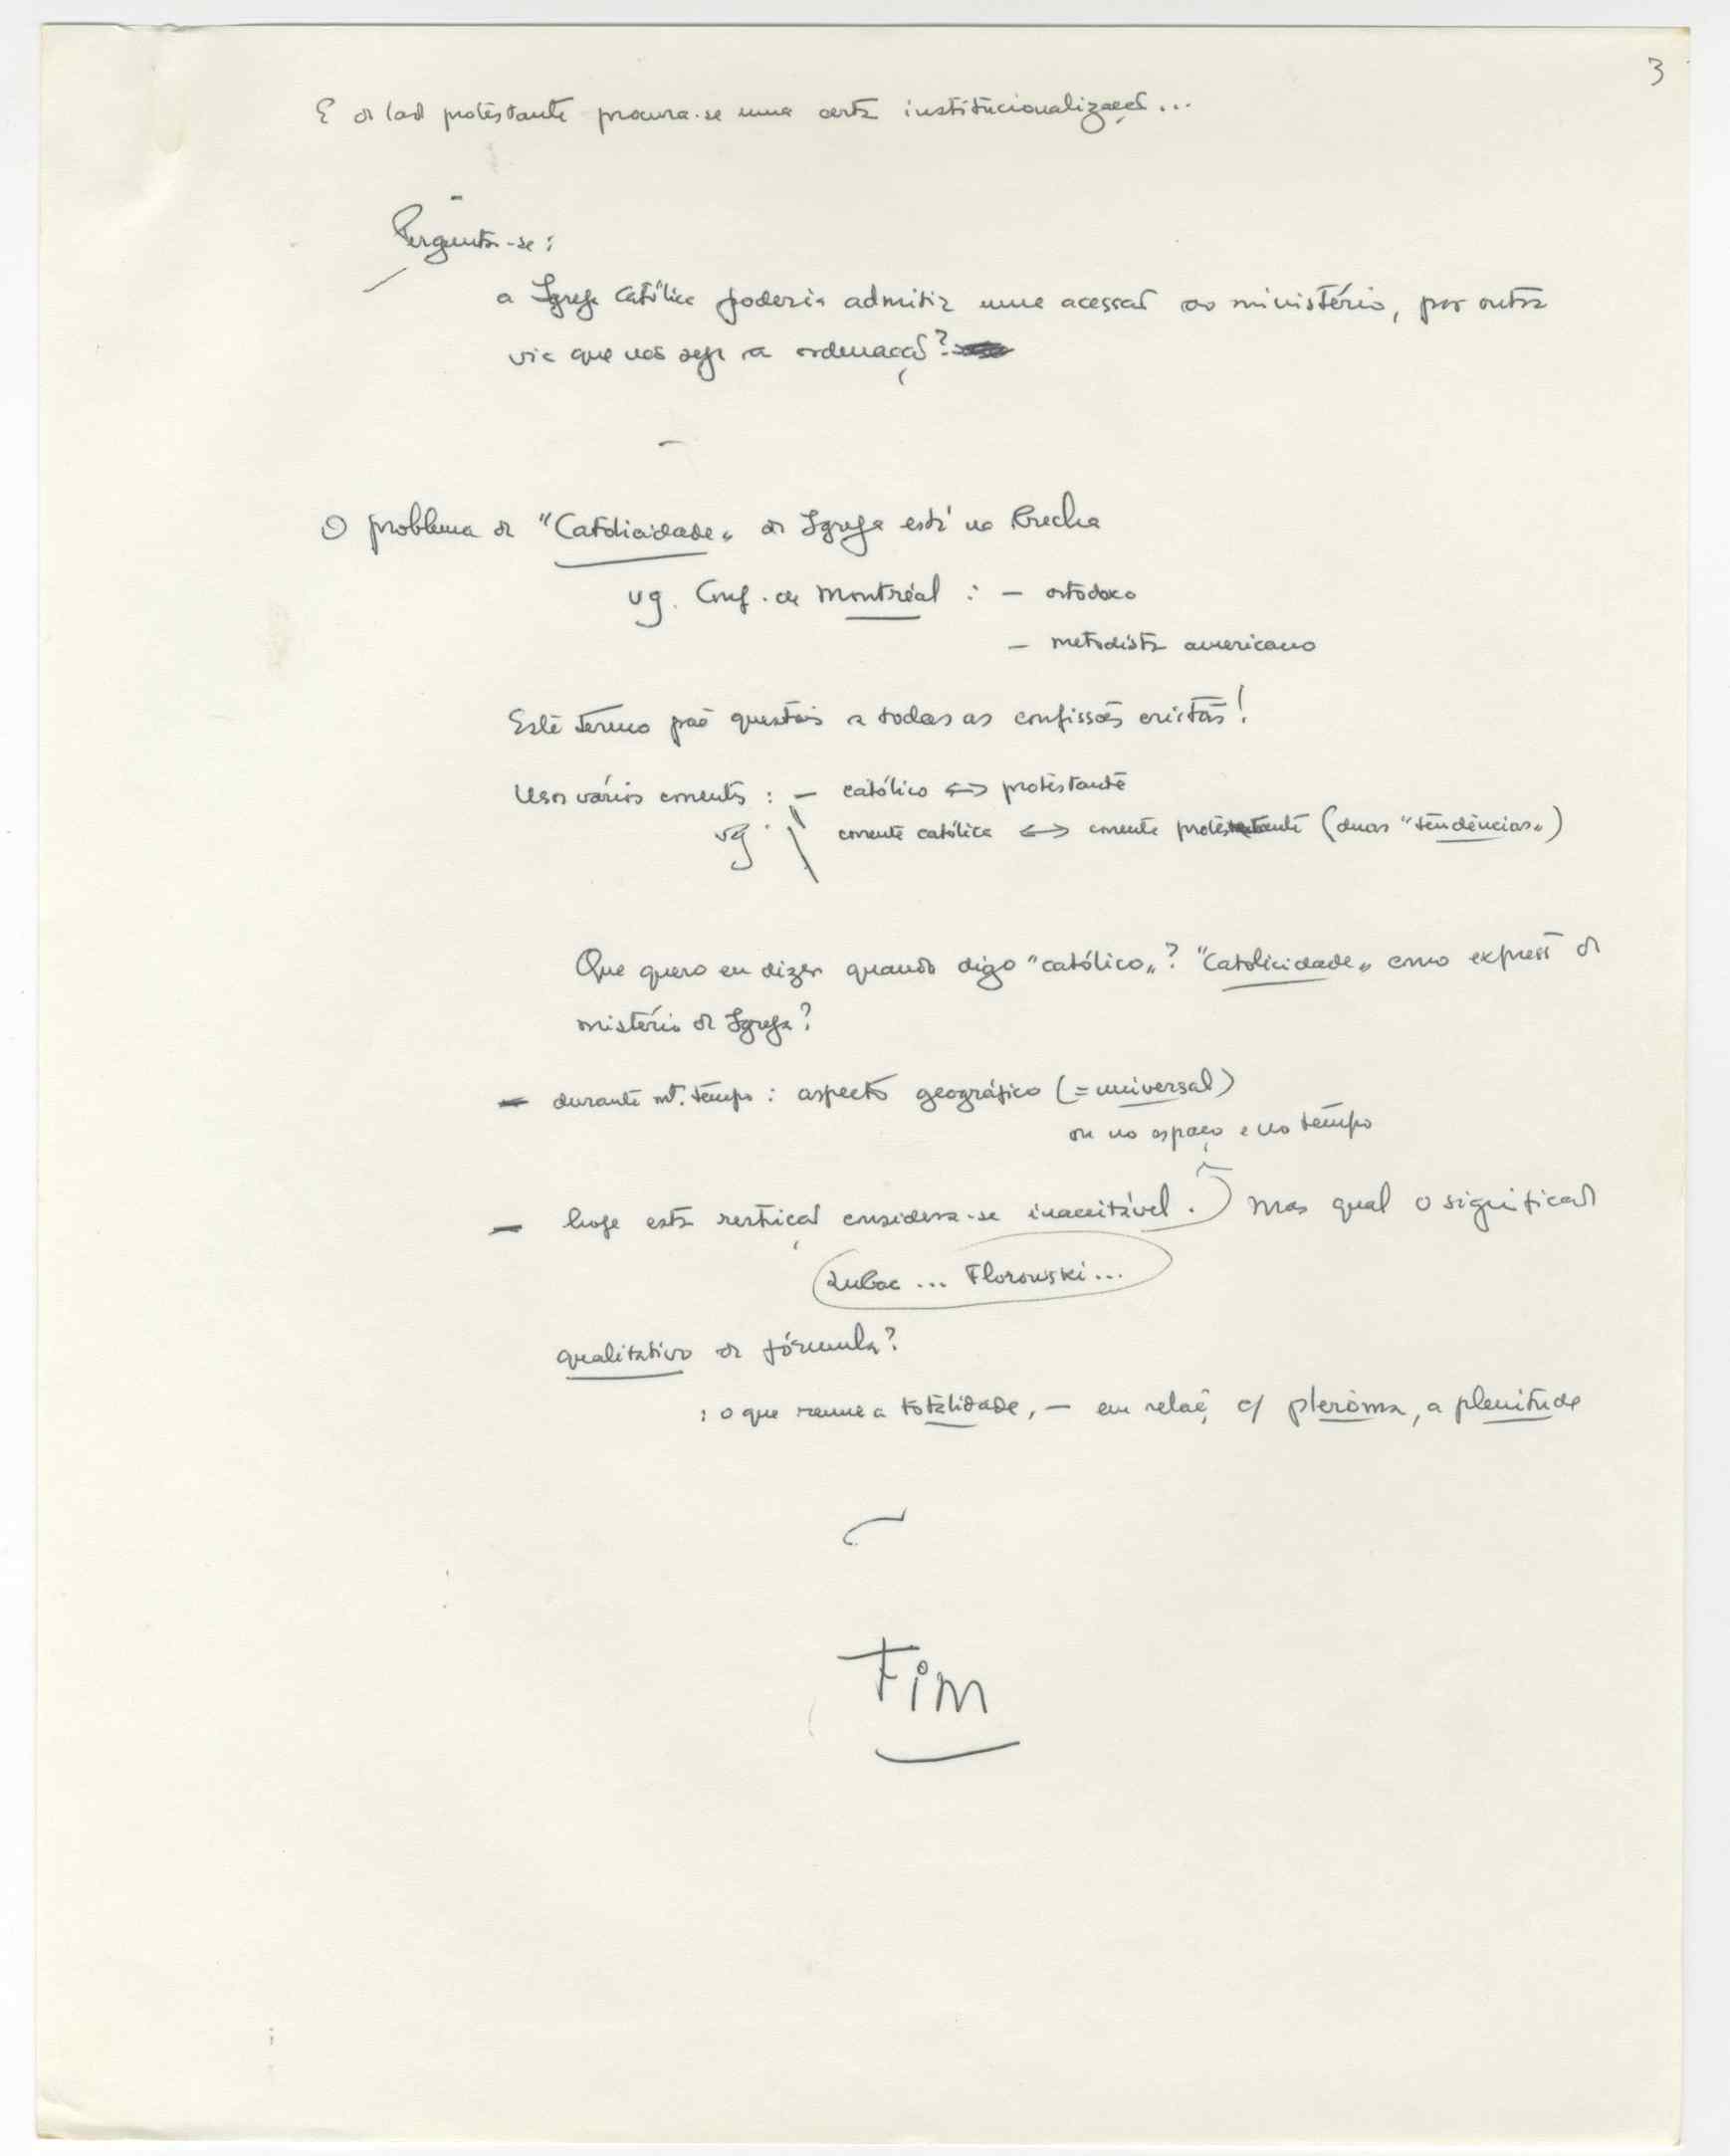 3
E do lado protestante procura-se uma certa institucionalização...
Pergunta-se:
a Igreja Católica poderia admitir uma acessão ao ministério, por outra
via que não seja a ordenação?
O problema da "Catolicidade" da Igreja está na brecha
vg. Conf. de Montréal : — ortodoxo
— metodista americano
Este termo põe questões a todas as confissões cristãs!
Usos vários correntes : — católico <-> protestante
vg. corrente católica <-> corrente protestante (duas "tendências")
Que quero eu dizer quando digo "católico"? "Catolicidade" como expressão do
mistério da Igreja?
— durante mt. tempo : aspecto geográfico (= universal)
ou no espaço e no tempo
— hoje esta restrição considera-se inaceitável. Mas qual o significado
Lubac ... Florowski ...
qualitativo da fórmula?
: o que reune a totalidade, — em relação c/ pleroma, a plenitude
Fim